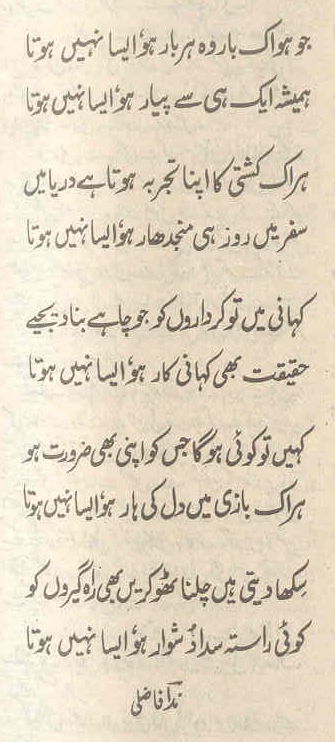 جو ہو اک بار وہ ہر بار ہو، ایسا نہیں ہوتا
ہمیشہ ایک ہی سے پیار ہو، ایسا نہیں ہوتا
ہر اک کشتی کا اپنا تجربہ ہوتا ہے دریا میں
سفر میں روز ہی منجدھار ہو، ایسا نہیں ہوتا
کہانی میں تو کرداروں کو جو چاہے بنا دیجیے
حقیقت بھی کہانی کار ہو، ایسا نہیں ہوتا
کہیں تو کوئی ہوگا جس کو اپنی بھی ضرورت ہو
ہر اک بازی میں دل کی ہار ہو، ایسا نہیں ہوتا
سِکھا دیتی ہیں چلنا ٹھوکریں بھی راہ گیروں کو
کوئی راستہ سدا دُشوار ہو، ایسا نہیں ہوتا
ندا فاضلی